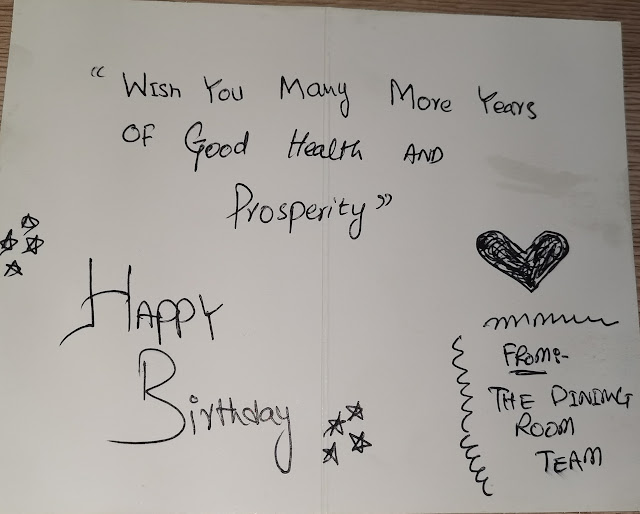 "Wish You Many More Years
OF Good Health AND
Prosperity"
HAPPY
Birthday
FROM:-
THE DINING
ROOM
TEAM